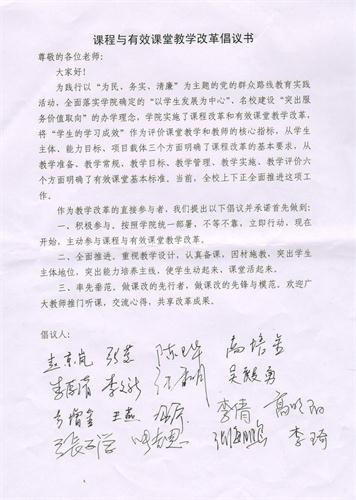 课程与有效课堂教学改革倡议书
尊敬的各位老师：
大家好！
为践行以“为民、务实、清廉”为主题的党的群众路线教育实践
活动，全面落实学院确定的“以学生发展为中心”、名校建设“突出服
务价值取向”的办学理念，学院实施了课程改革和有效课堂教学改革，
将“学生的学习成效”作为评价课堂教学和教师的核心指标，从学生
主体、能力目标、项目载体三个方面明确了课程改革的基本要求，从
教学准备、教学常规、教学目标、教学管理、教学实施、教学评价六
个方面明确了有效课堂基本标准。当前，全校上下正全面推进这项工
作。
作为教学改革的直接参与者，我们提出以下倡议并承诺首先做到：
一、积极参与。按照学院统一部署，不等不靠，立即行动，现在
开始，主动参与课程与有效课堂教学改革。
二、全面推进。重视教学设计，认真备课，因材施教，突出学生
主体地位，突出能力培养主线，使学生动起来，课堂活起来。
三、率先垂范。做课改的先行者，做课改的先锋与模范。欢迎广
大教师推门听课，交流心得，共享改革成果。
倡议人：
孟京岚 张芸 陈玉华 高培金
李文新 吴毅勇
王燕 李倩 高明
张海鹏 李琦